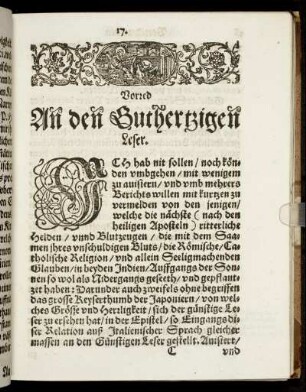 17.
Vorred
An den Guthertzigen
Leser.
ICH hab nit sollen / noch kön-
den vmbgehen / mit wenigem
zu auissern / vnd vmb mehrers
Berichts willen mit kurtzen zu
vermelden von den jenigen /
welche die nächste (nach den
heiligen Aposteln) ritterliche
Helden / vnnd Blutzeugen / die mit dem Saa-
men jhres vnschuldigen Bluts / die Römische / Ca-
tholische Religion / vnd allein Seeligmachenden
Glauben / in beyden Indien / Auffgangs der Son-
nen so wol als Nidergangs geseeth / vnd gepflan-
tzet haben: Darunder auch zweifels ohne begriffen
das grosse Keyserthumb der Japoniern / von wel-
ches Grösse vnd Herrligkeit / sich der günstige Le-
ser zu ersehen hat / in der Epistel / so Eingangs di-
ser Relation auß Italienischer Sprach gleicher
massen an den Günstigen Leser gestelt. Aussert /
C vnd